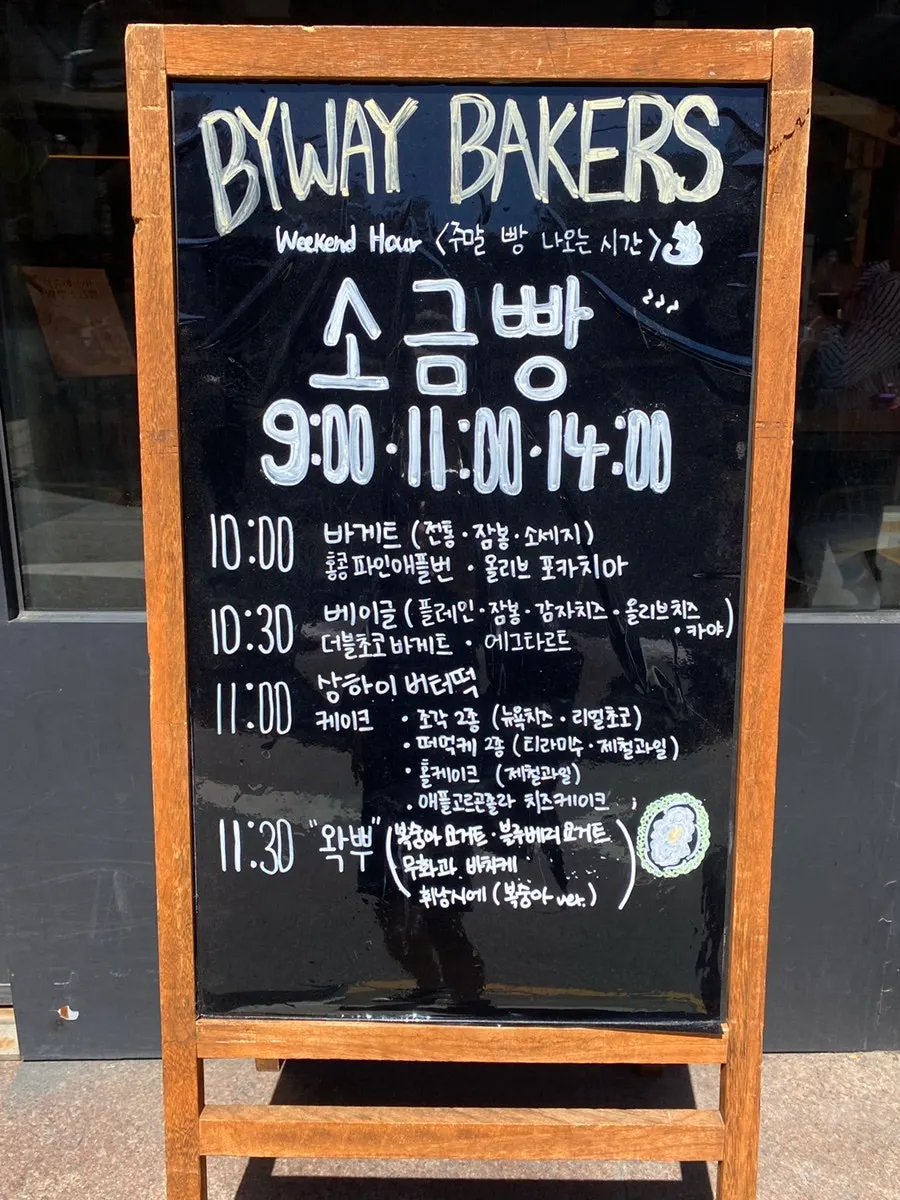 BYWAY BAKERS
Weekend Hour <주말 빵 나오는 시간>
소금빵
9:00 · 11:00 · 14:00
10:00 바게트 (전통 · 잠봉 · 소세지)
홍콩 파인애플번 · 올리브 포카치아
10:30 베이글 (플레인 · 잠봉 · 감자치즈 · 올리브치즈
· 카야)
더블초코바게트 · 에그타르트
11:00 상하이 버터떡
케이크 · 조각 2종 (뉴욕치즈 · 리얼초코)
· 떠먹케 2종 (티라미수 · 제철과일)
· 홀케이크 (제철과일)
· 애플고르곤졸라 치즈케이크
11:30 "왁뿌" (복숭아 요거트 · 블루베리 요거트
무화과 바치케
· 휘낭시에 (복숭아 ver.))